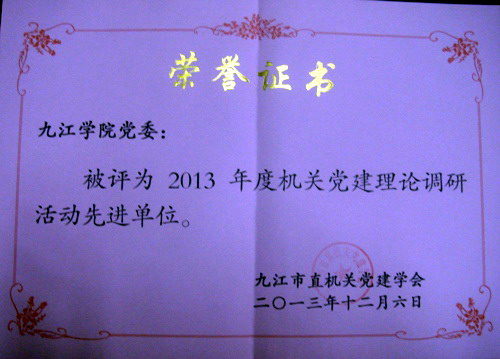 荣誉证书
九江学院党委：
被评为 2013 年度机关党建理论调研
活动先进单位。
九江市直机关党建学会
二〇一三年十二月六日